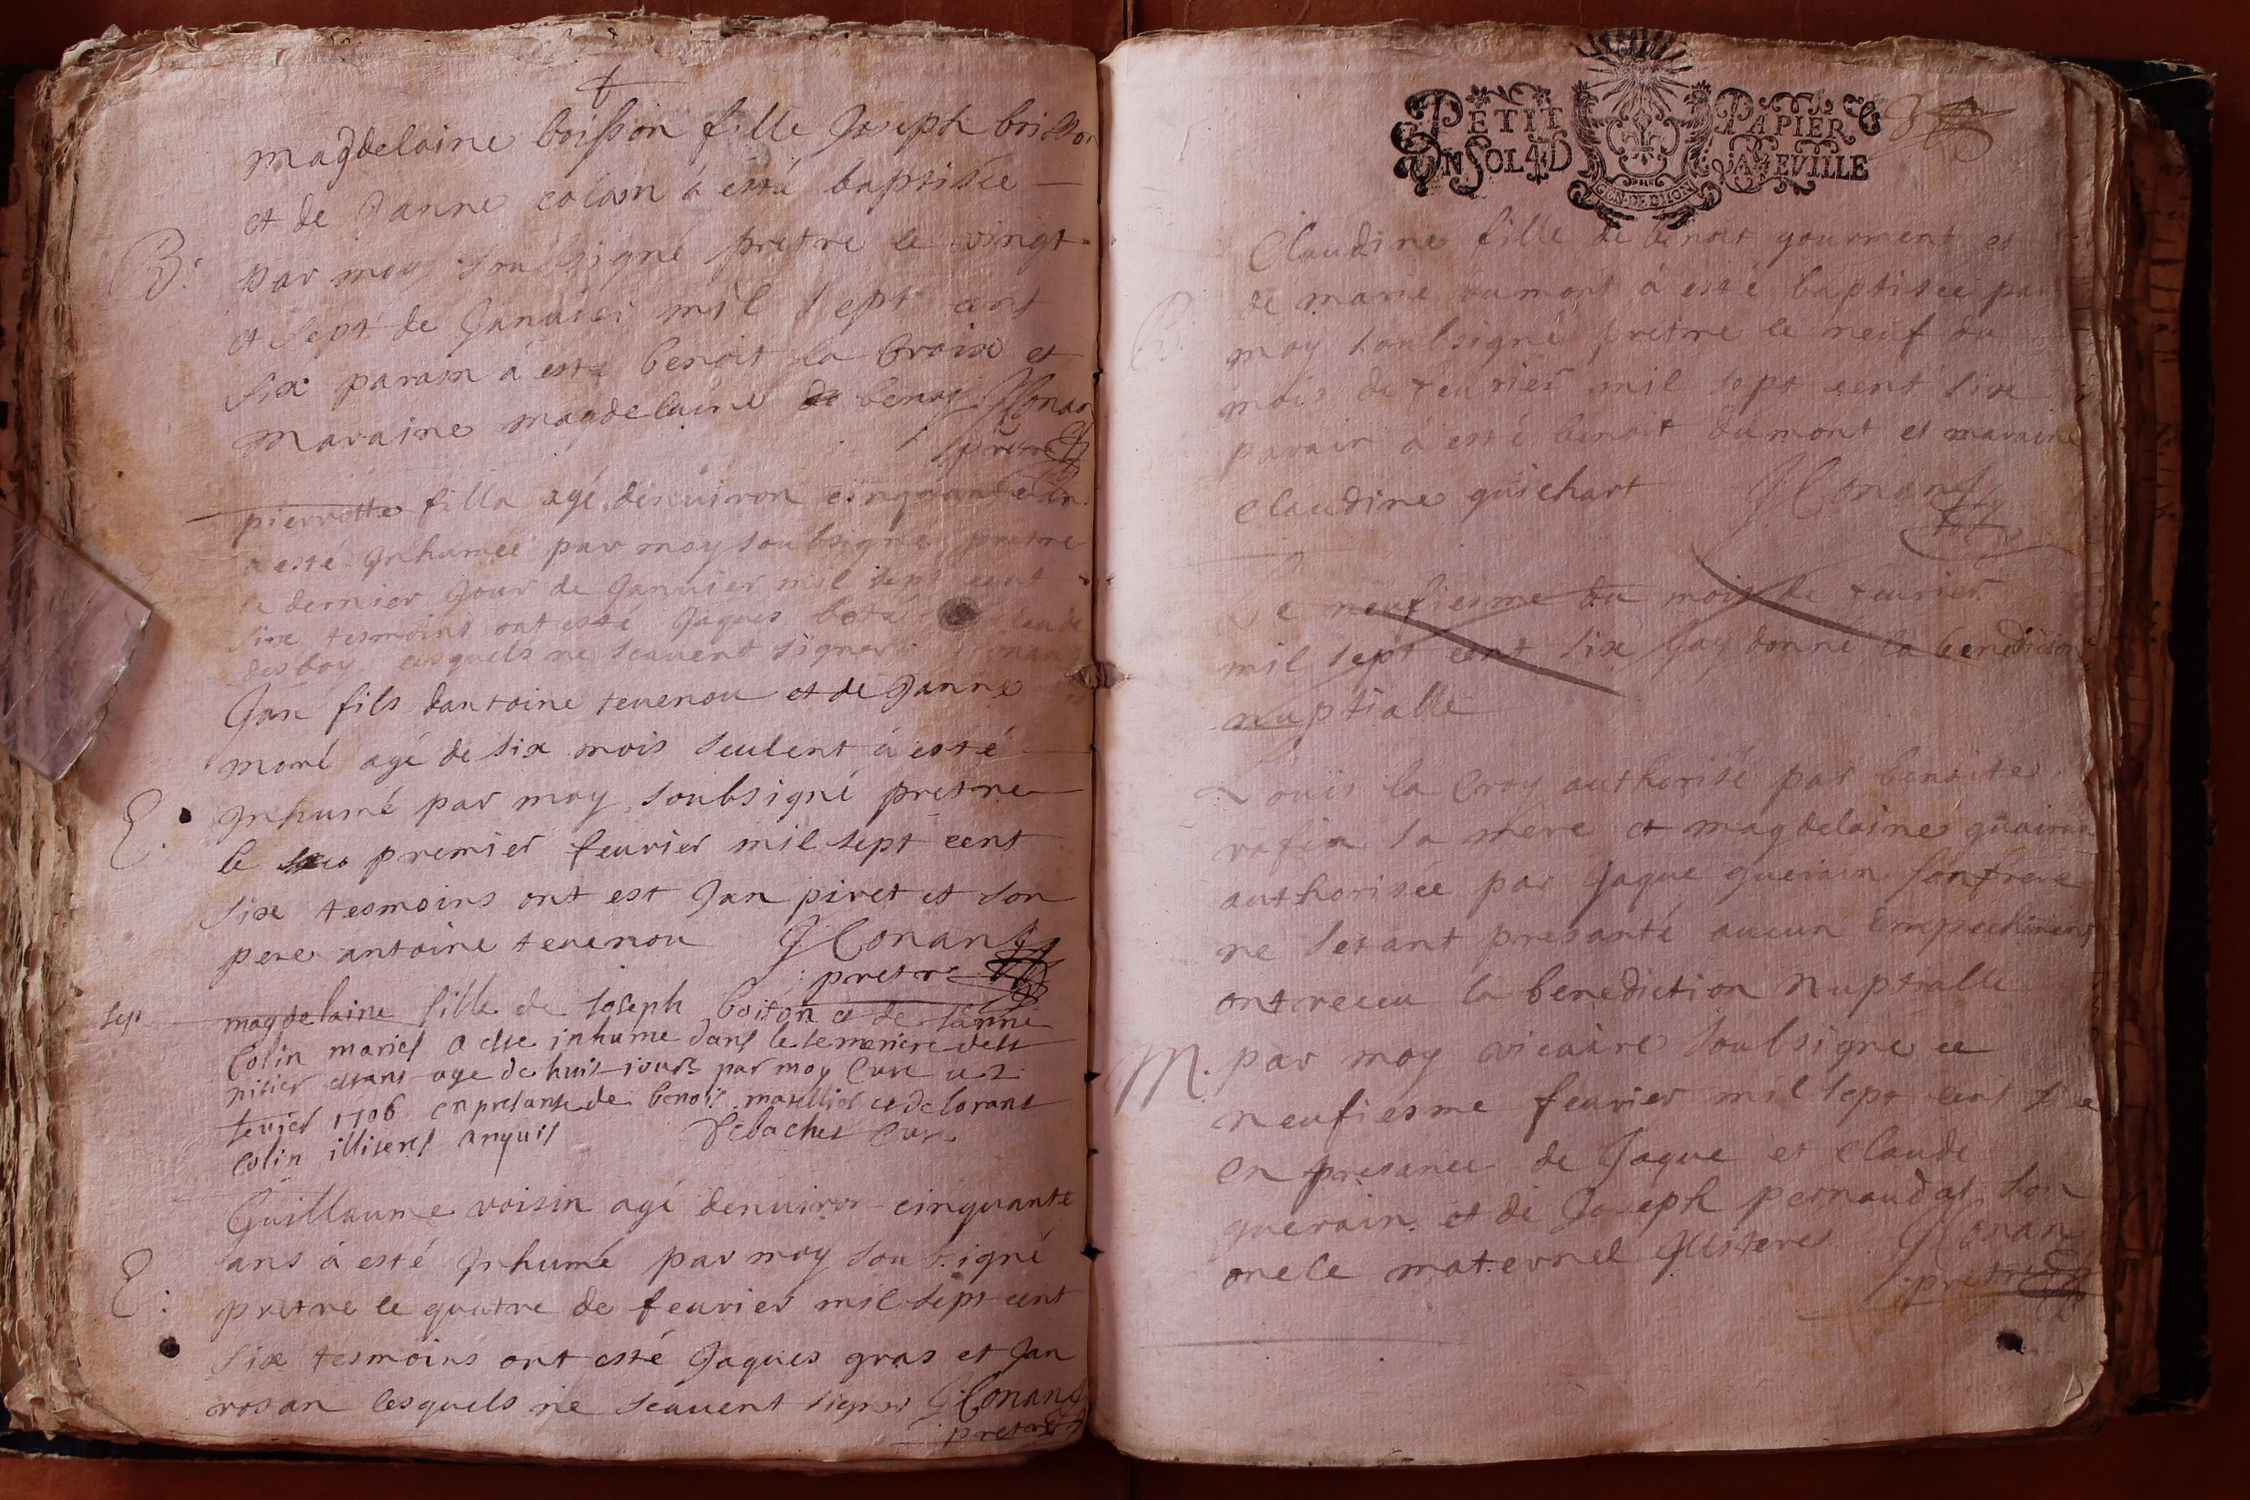 magdelaine boisson fille Joseph boisson
et de Janne colam à esté baptisée
B: par moy soubsigné pretre le vingt
et sept de Januier mil sept cent
six parain à esté benoit la Croix et
maraine magdelaine benoy JConan
pretre
pierrotte filla agé denuiron cinquante an
à esté Inhumée par moy soubsigné pretre
le dernier Jour de Januier mil sept cent
six tesmoins ont esté Jaques
lesquels ne scauent signer
Jan fils dantoine teuenou et de Janne
moré agé de six mois seulent à esté
E. Inhumé par moy soubsigné pretre
le premier feurier mil sept cent
six tesmoins ont est Jan piret et son
pere antoine teuenou JConan
pretre
sep magdelaine fille de Joseph boison et de Janne
Colin mariés a este inhume dans le semetiere de St
nisier estant age de huit jours par moy Cure ce 2
feurier 1706 en presante de benoit et de lorans
Colin illiteres anquis Cure
Guillaume voisin agé denuiron cinquante
ans à esté Inhumé par moy soubsigné
E: pretre le quatre de feurier mil sept cent
six tesmoins ont esté Jaques gras et Jan
rosan lesquels ne scauent signer JConan
pretre
PETIT PAPIER
UN SOL 4 D LA FEVILLE
GEN. DE LION
Claudine fille de benoit gourment et
de marie dumont à esté baptisée par
B. moy soubsigné pretre le neuf du
mois de feurier mil sept cent six
parain à esté benoit dumont et maraine
Claudine guichart JConan
Le neufiesme du mois de feurier
mil sept cent six Jay donné la benediction
nuptialle
Louis la Croy authorisé par benoite
rafin sa mere et magdelaine guairin
authorisée par Jaque guerain son frere
ne setant presanté aucun Empechiment
ont receu la benediction Nuptialle
M. par moy vicaire soubsigne ce
neufiesme feurier mil sept cent six
en presance de Jaque et Claude
guerain et de Joseph pernaudat son
oncle maternel Illiteres JConan
pretre